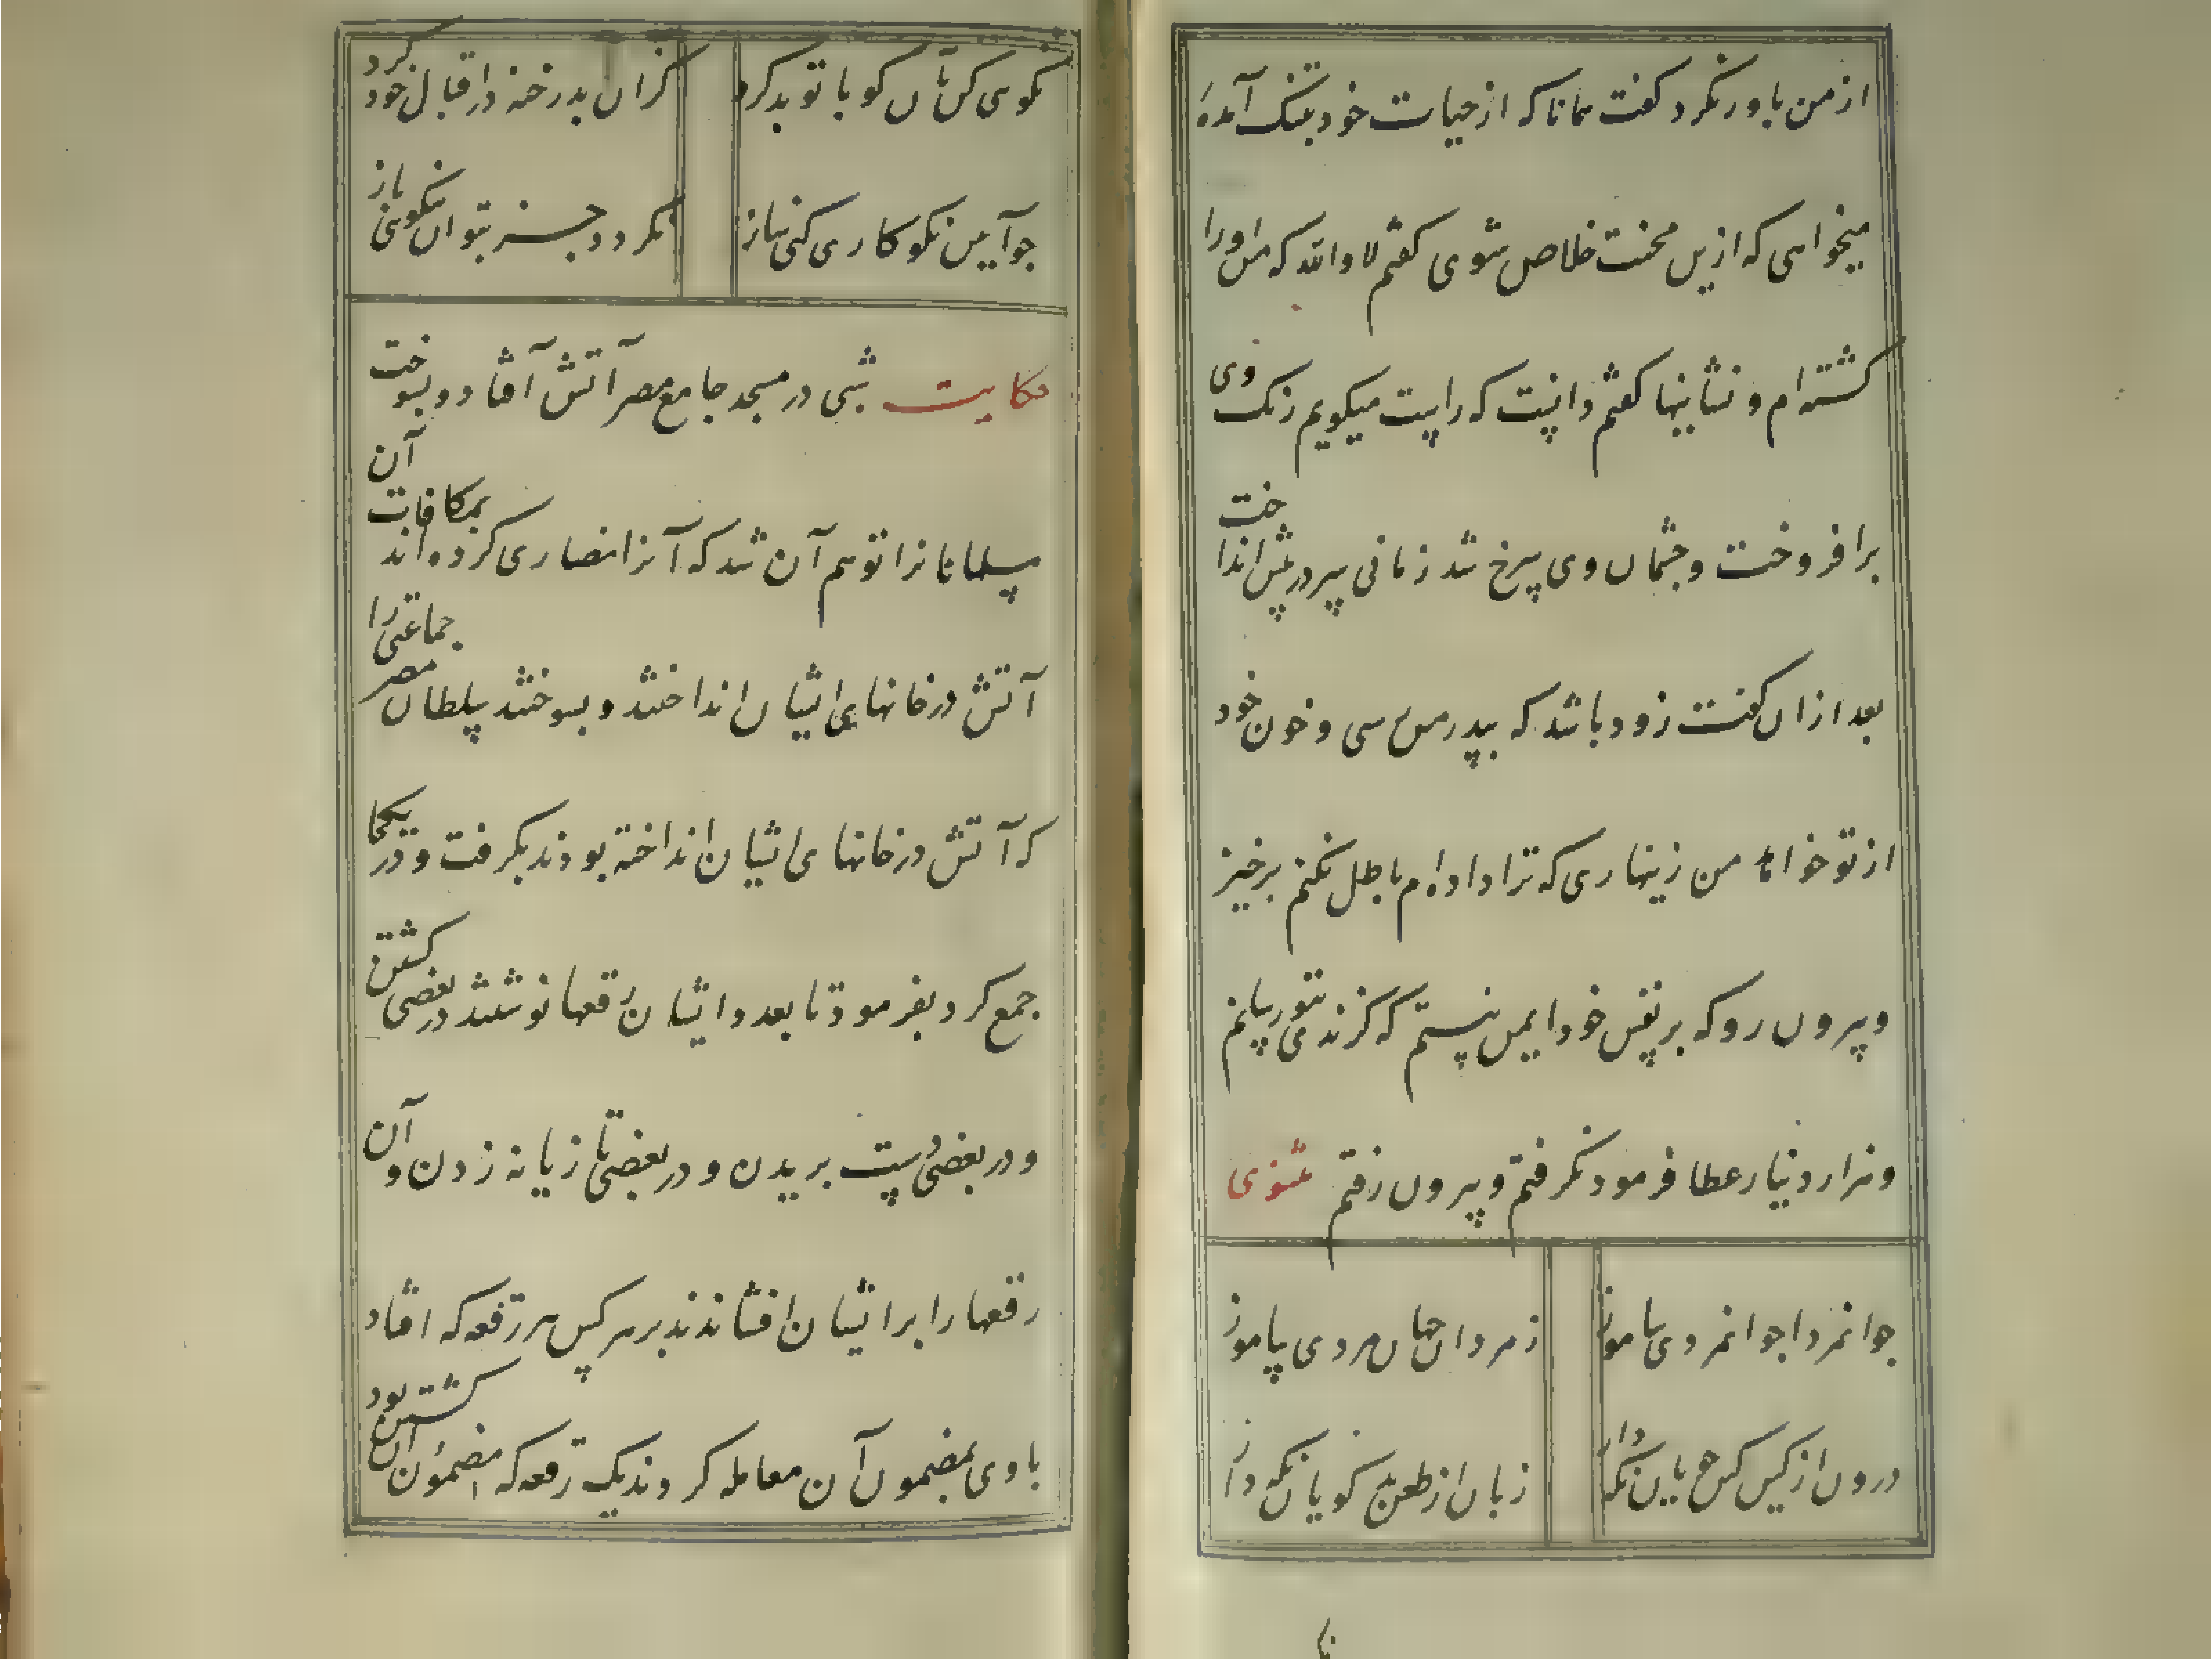 از من باور نکرد و گفت همانا که از حیات خود بتنگ آمدهٔ
میخواهی که ازین محنت خلاص شوی گفتم لا والله که من او را
کشته ام و نشانیها گفتم دانست که راست میگویم رنگ وی
برافروخت و چشمان وی سرخ شد زمانی سر در پیش انداخت
بعد از ان گفت زود باشد که بپدر من رسی و خون خود
از تو خواهد من زینهاری که ترا داده ام باطل نکنم برخیز
و بیرون رو که بر نفس خود ایمن نیستم که گزندی بتو رسانم
و هزار دینار عطا فرمود بگرفتم و بیرون رفتم مثنوی
جوانمردا جوانمردی بیاموز ز مردان جهان مردی بیاموز
درون از کین کین جویان نگه دار زبان از طعن بد گویان نگه دار
نکویی کن بآن کو با تو بد کرد کزان بد رخنه در اقبال خود کرد
چو آیین نکوکاری کنی ساز نگردد جز بتو آن نیکویی باز
حکایت شبی در مسجد جامع مصر آتش افتاد و بسوخت
مسلمانانرا توهم آن شد که آنرا نصاری کرده اند بمکافات آن
آتش در خانهای ایشان انداختند و بسوختند سلطان مصر جماعتی را
که آتش در خانهای ایشان انداخته بودند بگرفت و در یکجا
جمع کرد و بفرمود تا بعدد ایشان رقعها نوشتند در بعضی کشتن
و در بعضی دست بریدن و در بعضی تازیانه زدن و آن
رقعها را بر ایشان افشاندند بر هر کس هر رقعه که افتاد
با وی بمضمون آن معامله کردند یک رقعه که مضمون آن کشتن بود